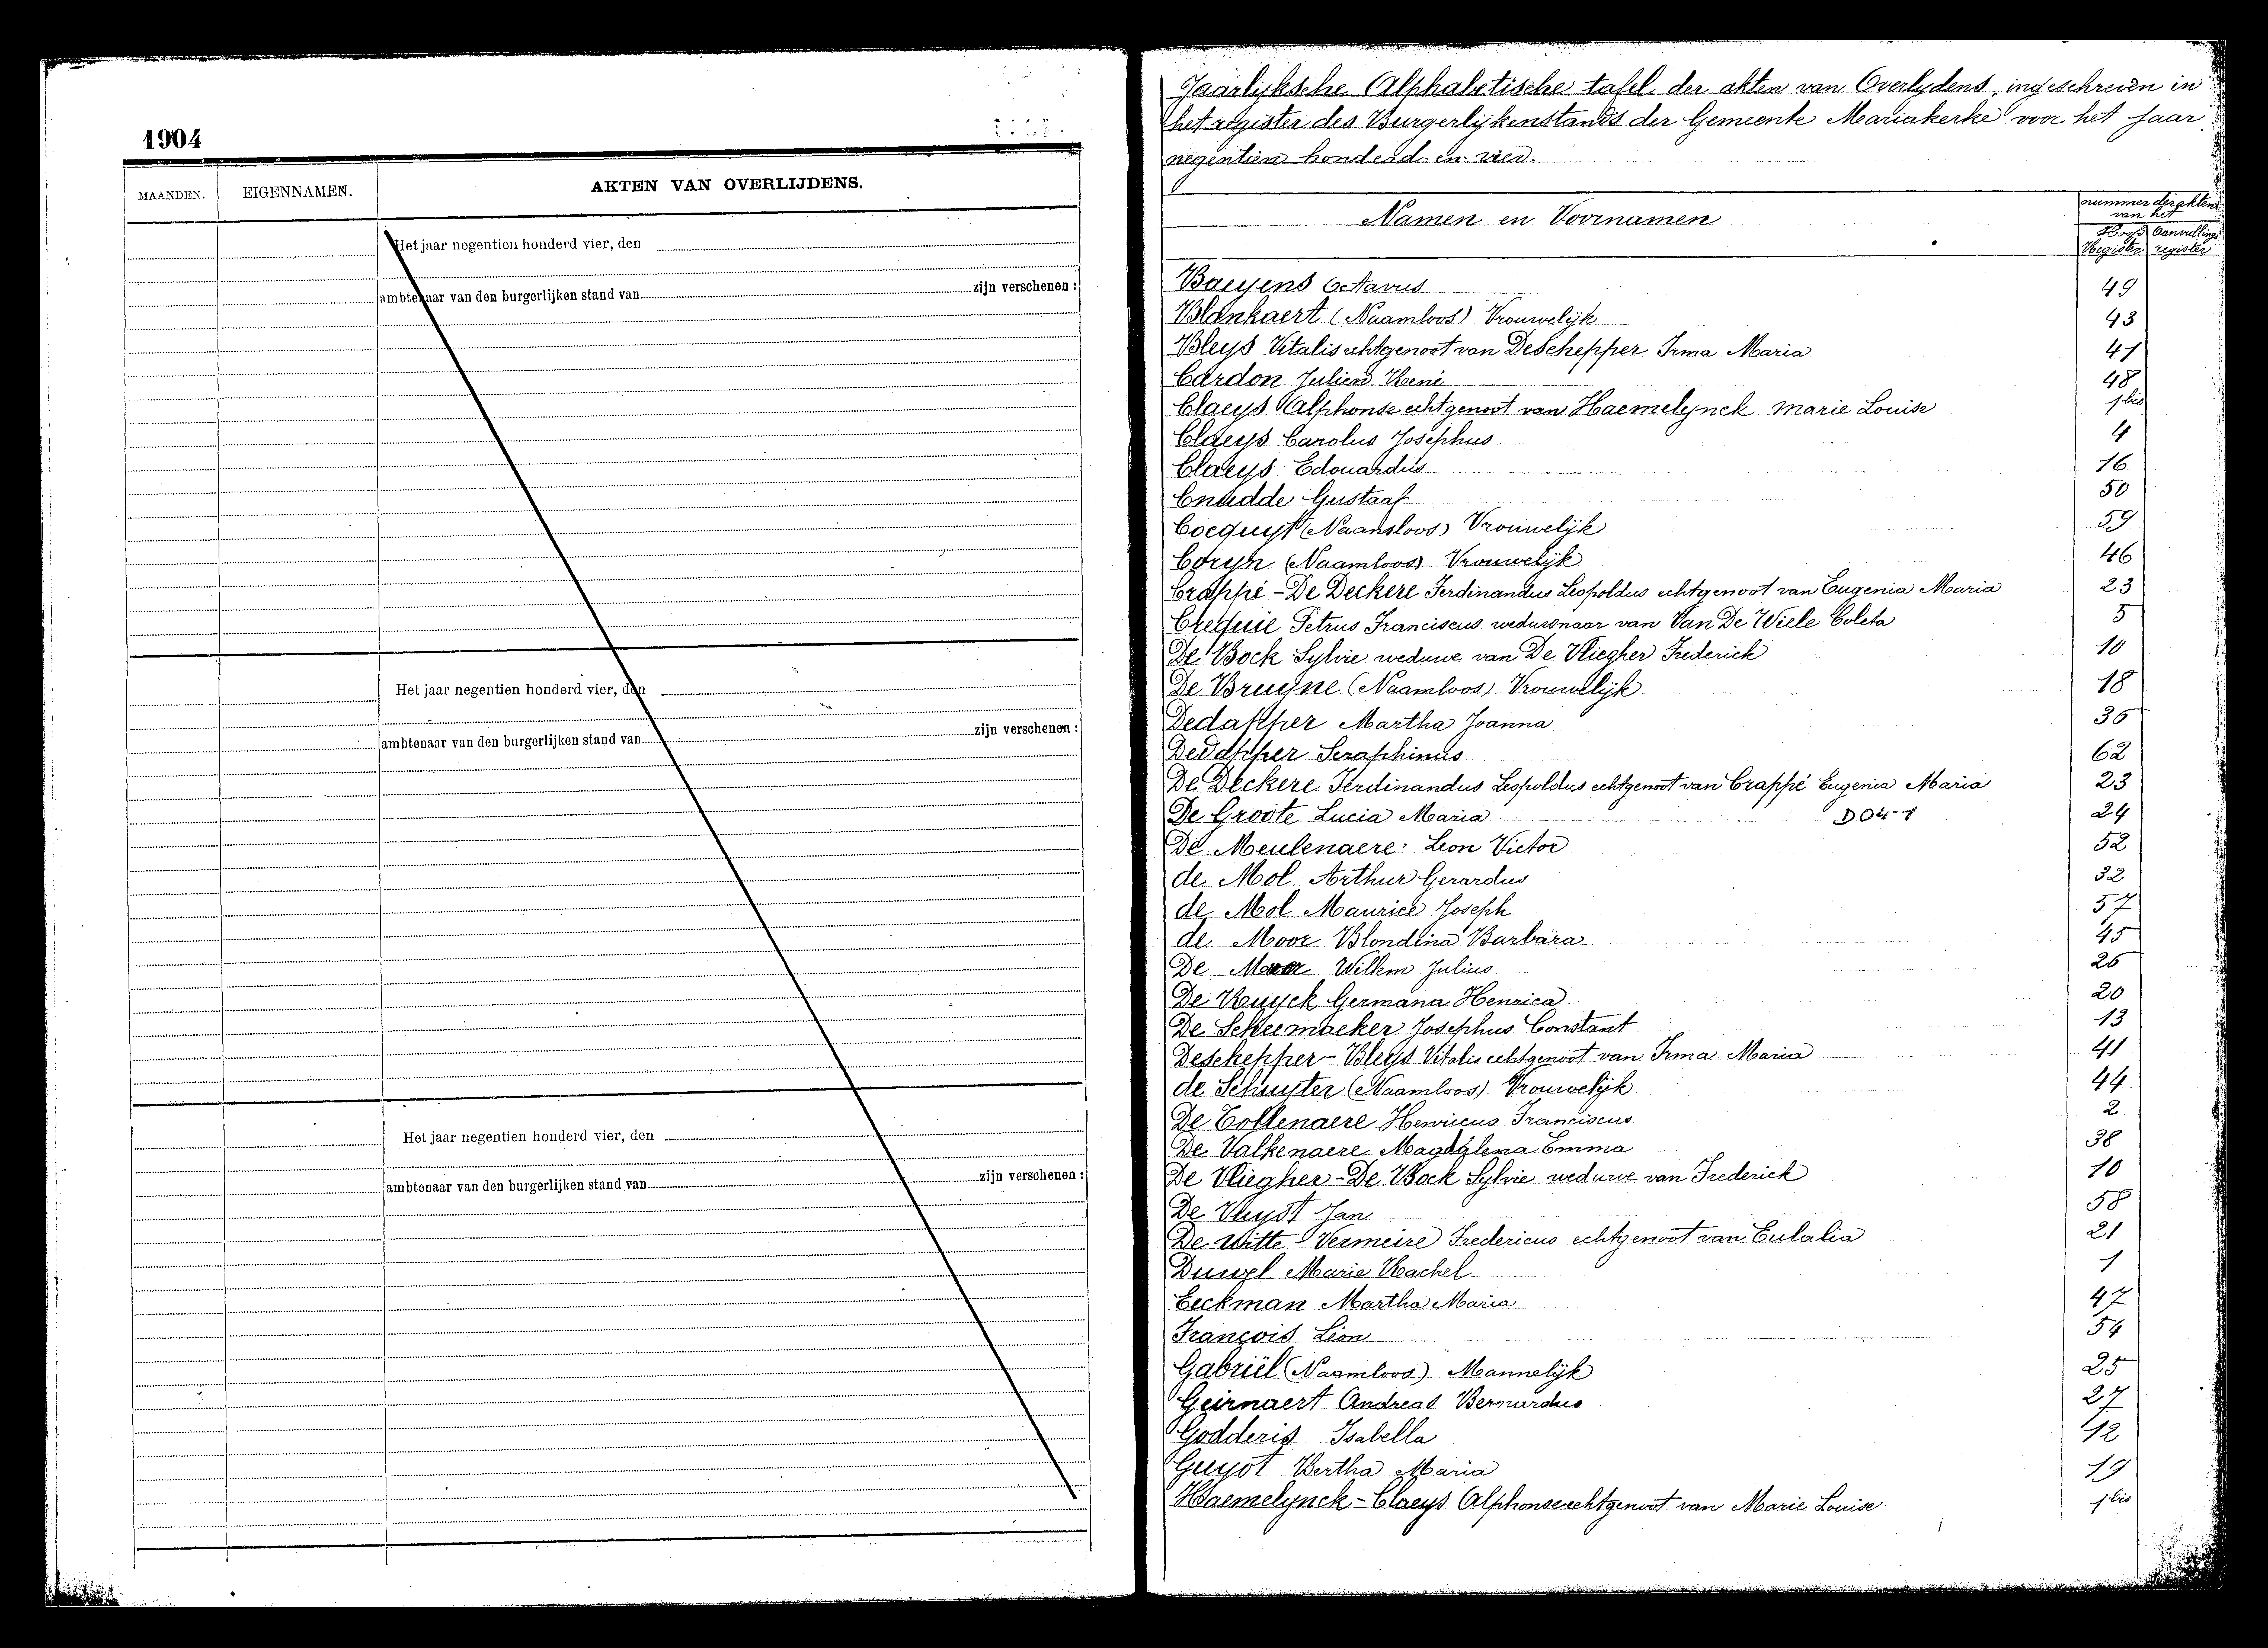 1904
MAANDEN.
EIGENNAMEN.
AKTEN VAN OVERLIJDENS.
Het jaar negentien honderd vier, den
ambtenaar van den burgerlijken stand van
zijn verschenen :
Het jaar negentien honderd vier, den
ambtenaar van den burgerlijken stand van
zijn verschenen :
Het jaar negentien honderd vier, den
ambtenaar van den burgerlijken stand van
zijn verschenen :
Jaarlijksche Alphabetische tafel der akten van Overlydens, ingeschreven in
het register des Burgerlijkenstands der Gemeente Mariakerke voor het jaar
negentien honderd en vier.
Namen en Voornamen
nummer der akten
van het
Hoofd Aanvullings
Register register
Baeyens Octavus 49
Blankaert (Naamloos) Vrouwelijk 43
Bleys Vitalis echtgenoot van DeSchepper Irma Maria 41
Cardon Julien René 48
Claeys Alphonse echtgenoot van Haemelynck Marie Louise 1bis
Claeys Carolus Josephus 4
Claeys Edouardus 16
Cnudde Gustaaf 50
Cocquyt (Naamloos) Vrouwelijk 59
Coryn (Naamloos) Vrouwelijk 46
Crappé - De Deckere Ferdinandus Leopoldus echtgenoot van Eugenia Maria 23
Crequie Petrus Franciscus weduwnaar van Van De Wiele Coleta 5
De Bock Sylvie weduwe van De Vliegher Frederick 10
De Bruyne (Naamloos) Vrouwelijk 18
Dedapper Martha Joanna 36
Dedapper Seraphinus 62
De Deckere Ferdinandus Leopoldus echtgenoot van Crappé Eugenia Maria 23
De Groote Lucia Maria D04-1 24
De Meulenaere Leon Victor 52
de Mol Arthur Gerardus 32
de Mol Maurice Joseph 57
de Moor Blondina Barbara 45
De Willem Julius 26
De Ruyck Germana Henrica 20
De Scheemaeker Josephus Constant 13
Deschepper - Bleys Vitalis echtgenoot van Irma Maria 41
de Schuyter (Naamloos) Vrouwelijk 44
De Tollenaere Henricus Franciscus 2
De Valkenaere Magdalena Emma 38
De Vliegher - De Bock Sylvie weduwe van Frederick 10
De Vuyst Jan 58
De Witte - Vermeire Fredericus echtgenoot van Eulalia 21
Marie Rachel 1
Eeckman Martha Maria 47
François Léon 54
Gabriël (Naamloos) Mannelijk 25
Geirnaert Andreas Bernardus 27
Godderis Isabella 12
Guyot Bertha Maria 19
Haemelynck - Claeys Alphonse echtgenoot van Marie Louise 1bis